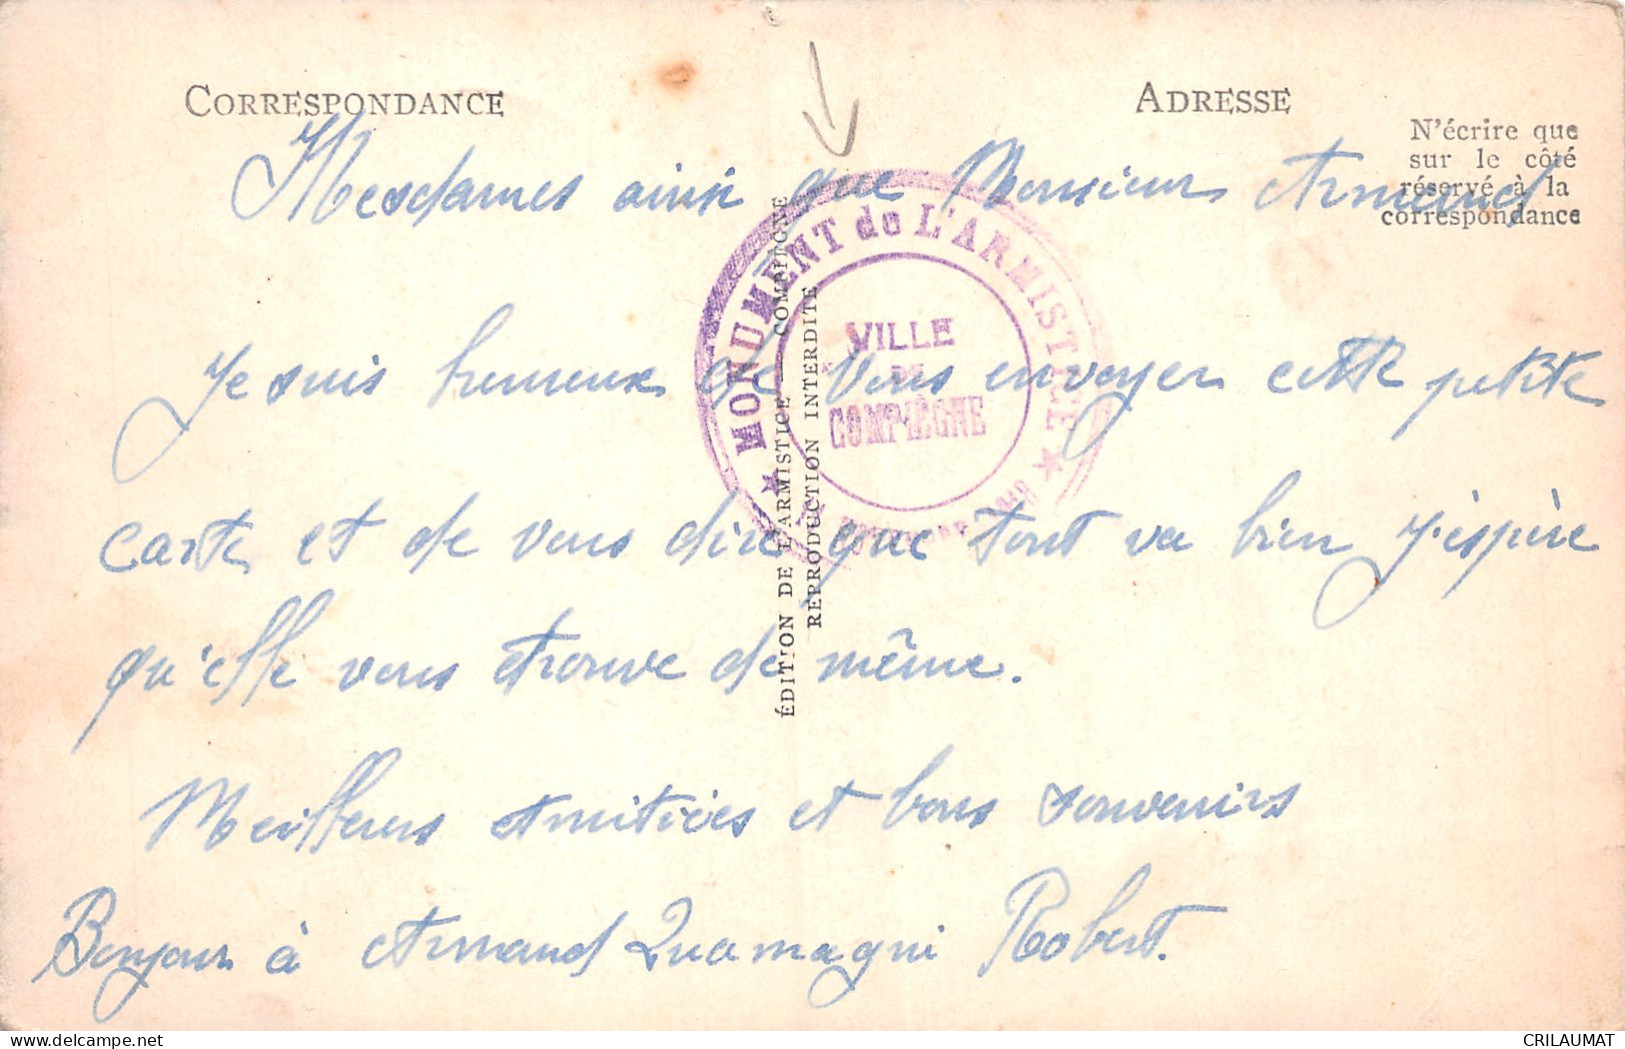 CORRESPONDANCE
ADRESSE
N'écrire que
sur le côté
réservé à la
correspondance
Mesdames ainsi que Monsieur Armand
Je suis heureux de vous envoyer cette petite
carte et de vous dire que tout va bien j'espère
qu'elle vous trouve de même.
Meilleurs Amitiées et bons souvenirs
Bonjour à Armand Robert.
MONUMENT de L'ARMISTICE
VILLE
DE
COMPIÈGNE
ÉDITION DE L'ARMISTICE COMPIÈGNE
REPRODUCTION INTERDITE
CRILAUMAT